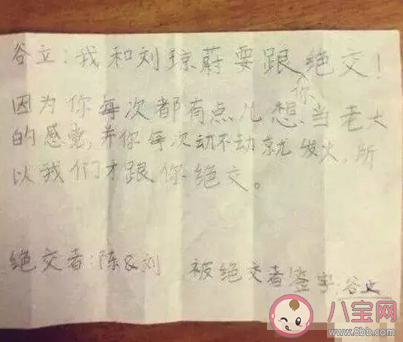 谷立:我和刘琼蔚要跟绝交!
你
因为你每次都有点儿想当老大
的感觉,并你每次动不动就发火,所
以我们才跟你绝交。
绝交者:陈&刘 被绝交者签字:谷立
八宝网
www.8bb.com